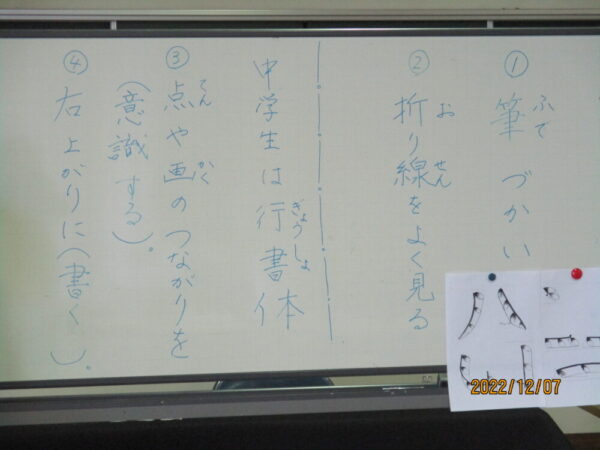 ① 筆づかい
ふで
② 折り線をよく見る
お せん
中学生は行書体
ぎょうしょ
③ 点や画のつながりを
てん かく
(意識する)。
④ 右上がりに(書く)。
2022/12/07